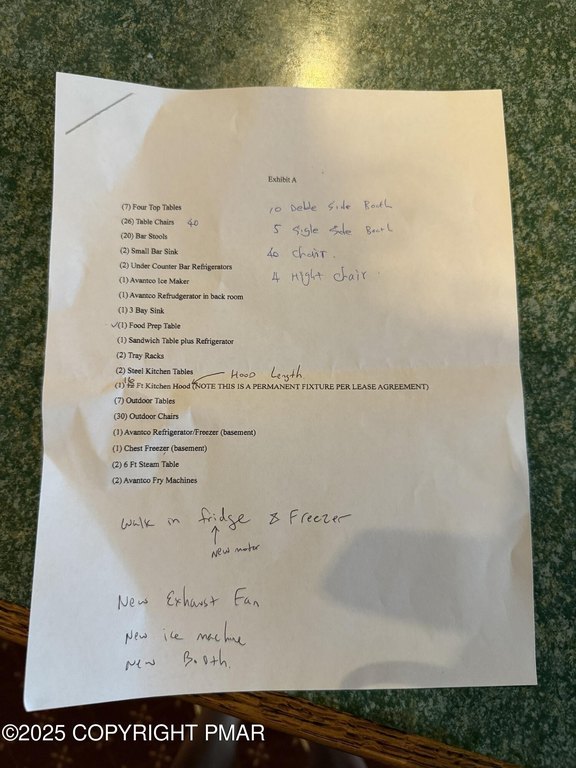 Exhibit A
(7) Four Top Tables
(26) Table Chairs 40
(20) Bar Stools
(2) Small Bar Sink
(2) Under Counter Bar Refrigerators
(1) Avantco Ice Maker
(1) Avantco Refrudgerator in back room
(1) 3 Bay Sink
✓(1) Food Prep Table
(1) Sandwich Table plus Refrigerator
(2) Tray Racks
(2) Steel Kitchen Tables
Hood Length
(1) 16 Ft Kitchen Hood (NOTE THIS IS A PERMANENT FIXTURE PER LEASE AGREEMENT)
(7) Outdoor Tables
(30) Outdoor Chairs
(1) Avantco Refrigerator/Freezer (basement)
(1) Chest Freezer (basement)
(2) 6 Ft Steam Table
(2) Avantco Fry Machines
10 Deble Side Booth
5 Sigle Side Booth
40 Chair.
4 Hight Chair
Walk in fridge & Freezer
New motor
New Exhaust Fan
New ice machine
New Booth.
©2025 COPYRIGHT PMAR